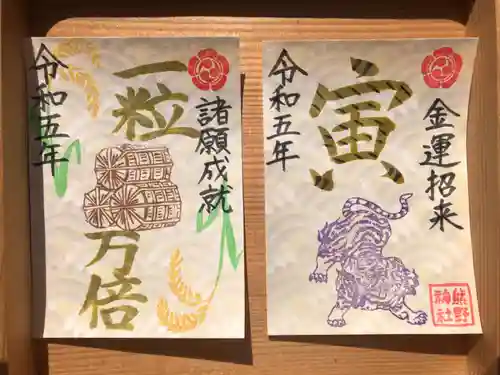 諸願成就
一粒
万倍
令和五年
金運招来
寅
令和五年
熊野
神社